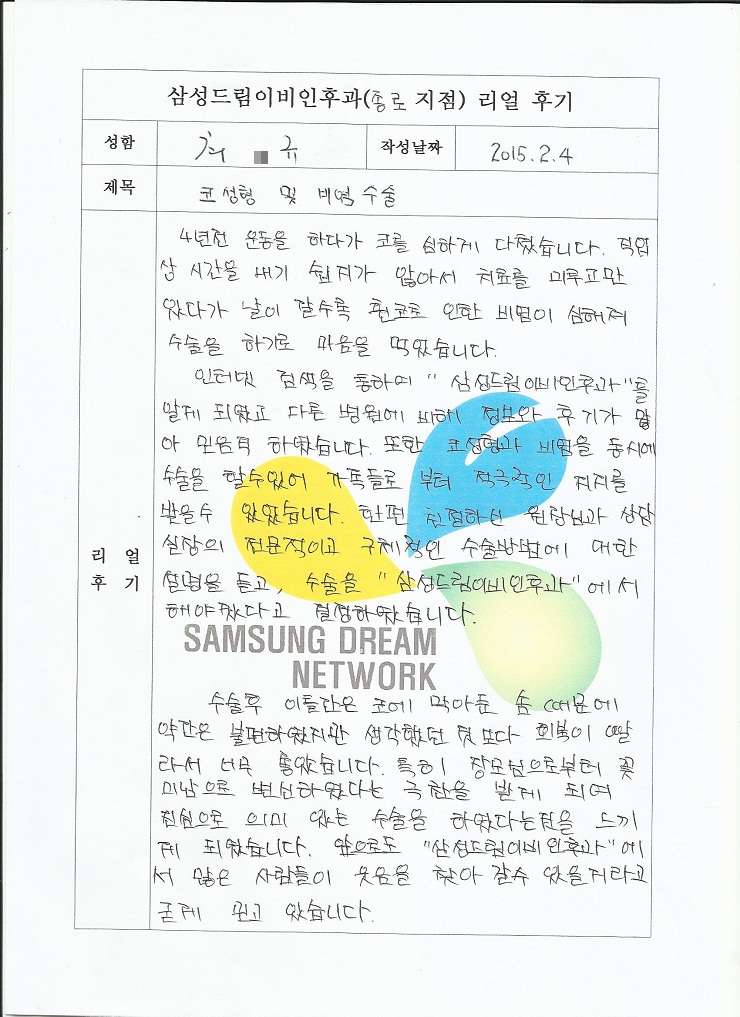 삼성드림이비인후과(종로 지점) 리얼 후기
성함 최 규 작성날짜 2015.2.4
제목 코성형 및 비염수술
리 얼
후 기
4년전 운동을 하다가 코를 심하게 다쳤습니다. 직업
상 시간을 내기 쉽지가 않아서 치료를 미루고만
있다가 날이 갈수록 휜코로 인한 비염이 심해져
수술을 하기로 마음을 먹었습니다.
인터넷 검색을 통하여 "삼성드림이비인후과"를
알게 되었고 다른 병원에 비해 정보와 후기가 많
아 믿음직 하였습니다. 또한 코성형과 비염을 동시에
수술을 할수있어 가족들로 부터 적극적인 지지를
받을수 있었습니다. 한편 친절하신 원장님과 상담
실장의 전문적이고 구체적인 수술방법에 대한
설명을 듣고, 수술을 "삼성드림이비인후과"에서
해야겠다고 결정하였습니다.
SAMSUNG DREAM
NETWORK
수술후 이틀간은 코에 막아둔 솜 때문에
약간은 불편하였지만 생각했던 것 보다 회복이 빨
라서 너무 좋았습니다. 특히 장모님으로부터 꽃
미남으로 변신하였다는 극찬을 받게 되어
진심으로 의미 있는 수술을 하였다는점을 느끼
게 되었습니다. 앞으로도 "삼성드림이비인후과"에
서 많은 사람들이 웃음을 찾아 갈수 있을거라고
굳게 믿고 있습니다.